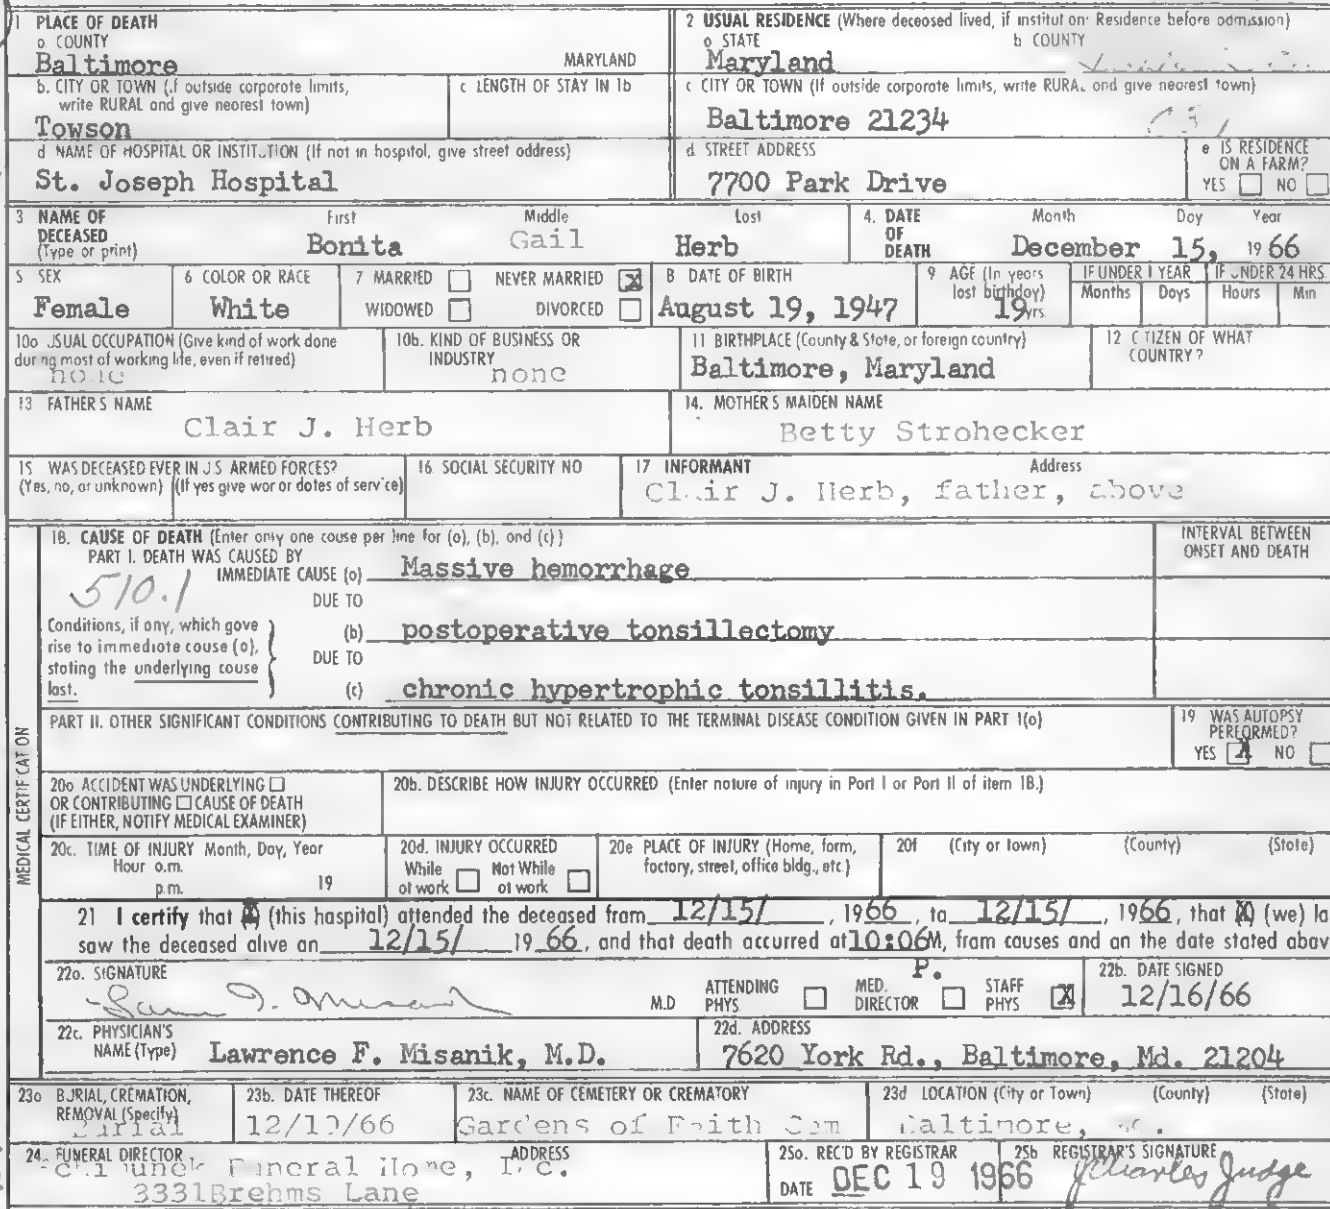 1 PLACE OF DEATH
a. COUNTY
Baltimore MARYLAND
b. CITY OR TOWN (If outside corporate limits, write RURAL and give nearest town)
Towson
c LENGTH OF STAY IN 1b
d NAME OF HOSPITAL OR INSTITUTION (If not in hospital, give street address)
St. Joseph Hospital
2 USUAL RESIDENCE (Where deceased lived, if institution: Residence before admission)
a STATE b COUNTY
Maryland
c CITY OR TOWN (If outside corporate limits, write RURAL and give nearest town)
Baltimore 21234
d. STREET ADDRESS
7700 Park Drive
e IS RESIDENCE ON A FARM?
YES NO
3 NAME OF DECEASED (Type or print)
First Middle Last
Bonita Gail Herb
4. DATE OF DEATH
Month Day Year
December 15, 1966
5 SEX
Female
6 COLOR OR RACE
White
7 MARRIED NEVER MARRIED X
WIDOWED DIVORCED
8 DATE OF BIRTH
August 19, 1947
9 AGE (In years last birthday)
19 yrs.
IF UNDER 1 YEAR
Months Days
IF UNDER 24 HRS.
Hours Min
10a USUAL OCCUPATION (Give kind of work done during most of working life, even if retired)
none
10b. KIND OF BUSINESS OR INDUSTRY
none
11 BIRTHPLACE (County & State, or foreign country)
Baltimore, Maryland
12 CITIZEN OF WHAT COUNTRY?
13 FATHER'S NAME
Clair J. Herb
14. MOTHER'S MAIDEN NAME
Betty Strohecker
15 WAS DECEASED EVER IN U.S. ARMED FORCES?
(Yes, no, or unknown) (If yes give war or dates of service)
16. SOCIAL SECURITY NO
17 INFORMANT Address
Clair J. Herb, father, above
MEDICAL CERTIFICATION
18. CAUSE OF DEATH (Enter only one cause per line for (a), (b), and (c))
INTERVAL BETWEEN ONSET AND DEATH
PART I. DEATH WAS CAUSED BY
510.1
IMMEDIATE CAUSE (a) Massive hemorrhage
DUE TO
Conditions, if any, which gave rise to immediate cause (a), stating the underlying cause last.
(b) postoperative tonsillectomy
DUE TO
(c) chronic hypertrophic tonsillitis.
PART II. OTHER SIGNIFICANT CONDITIONS CONTRIBUTING TO DEATH BUT NOT RELATED TO THE TERMINAL DISEASE CONDITION GIVEN IN PART I(a)
19 WAS AUTOPSY PERFORMED?
YES X NO
20a ACCIDENT WAS UNDERLYING
OR CONTRIBUTING CAUSE OF DEATH
(IF EITHER, NOTIFY MEDICAL EXAMINER)
20b. DESCRIBE HOW INJURY OCCURRED (Enter nature of injury in Part I or Part II of item 18.)
20c. TIME OF INJURY Month, Day, Year
Hour a.m.
p.m. 19
20d. INJURY OCCURRED
While at work Not While at work
20e PLACE OF INJURY (Home, form, factory, street, office bldg., etc)
20f (City or town) (County) (State)
21 I certify that (X) (this hospital) attended the deceased from 12/15/, 1966, to 12/15/, 1966, that (X) (we) la
saw the deceased alive on 12/15/ 1966, and that death occurred at 10:06 P. M, from causes and on the date stated abov
22a. SIGNATURE
M.D
ATTENDING PHYS MED. DIRECTOR STAFF PHYS X
22b. DATE SIGNED
12/16/66
22c. PHYSICIAN'S NAME (Type)
Lawrence F. Misanik, M.D.
22d. ADDRESS
7620 York Rd., Baltimore, Md. 21204
23a BURIAL, CREMATION, REMOVAL (Specify)
Burial
23b. DATE THEREOF
23c. NAME OF CEMETERY OR CREMATORY
Gardens of Faith Cem
23d LOCATION (City or Town) (County) (State)
Baltimore,
24. FUNERAL DIRECTOR ADDRESS
Funeral Home, Inc.
3331 Brehms Lane
25a. REC'D BY REGISTRAR
DATE DEC 19 1966
25b REGISTRAR'S SIGNATURE
J Charles Judge